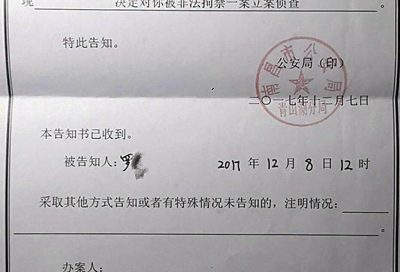 境 决定对你被非法拘禁一案立案侦查。
特此告知。
公安局（印）
南昌市公安局
青山湖分局
二〇一七年十二月七日
本告知书已收到。
被告知人：罗
2017 年 12 月 8 日 12 时
采取其他方式告知或者有特殊情况未告知的，注明情况：
办案人：